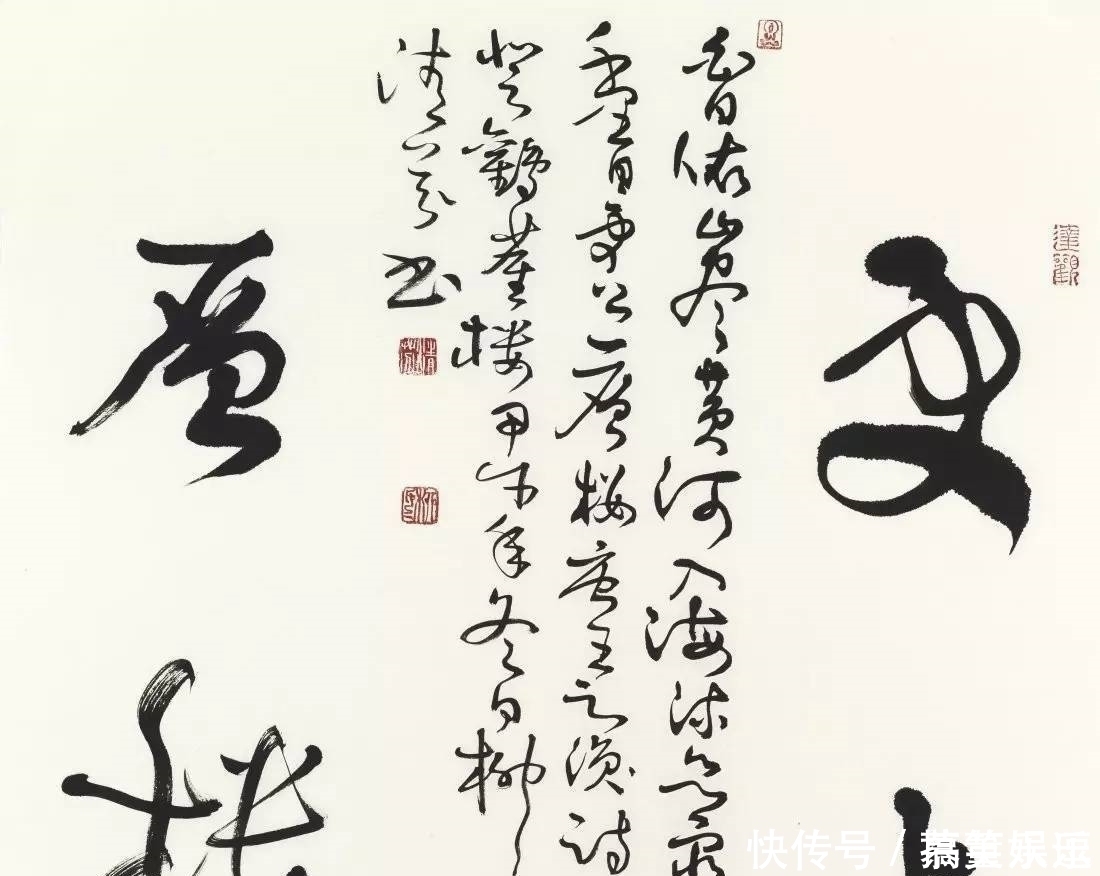 達觀
更
白日依山尽黄河入海流欲穷
千里目更上一层楼唐王之涣诗
登鹳雀楼甲午年冬日柳
清芬书
层
快传号 /